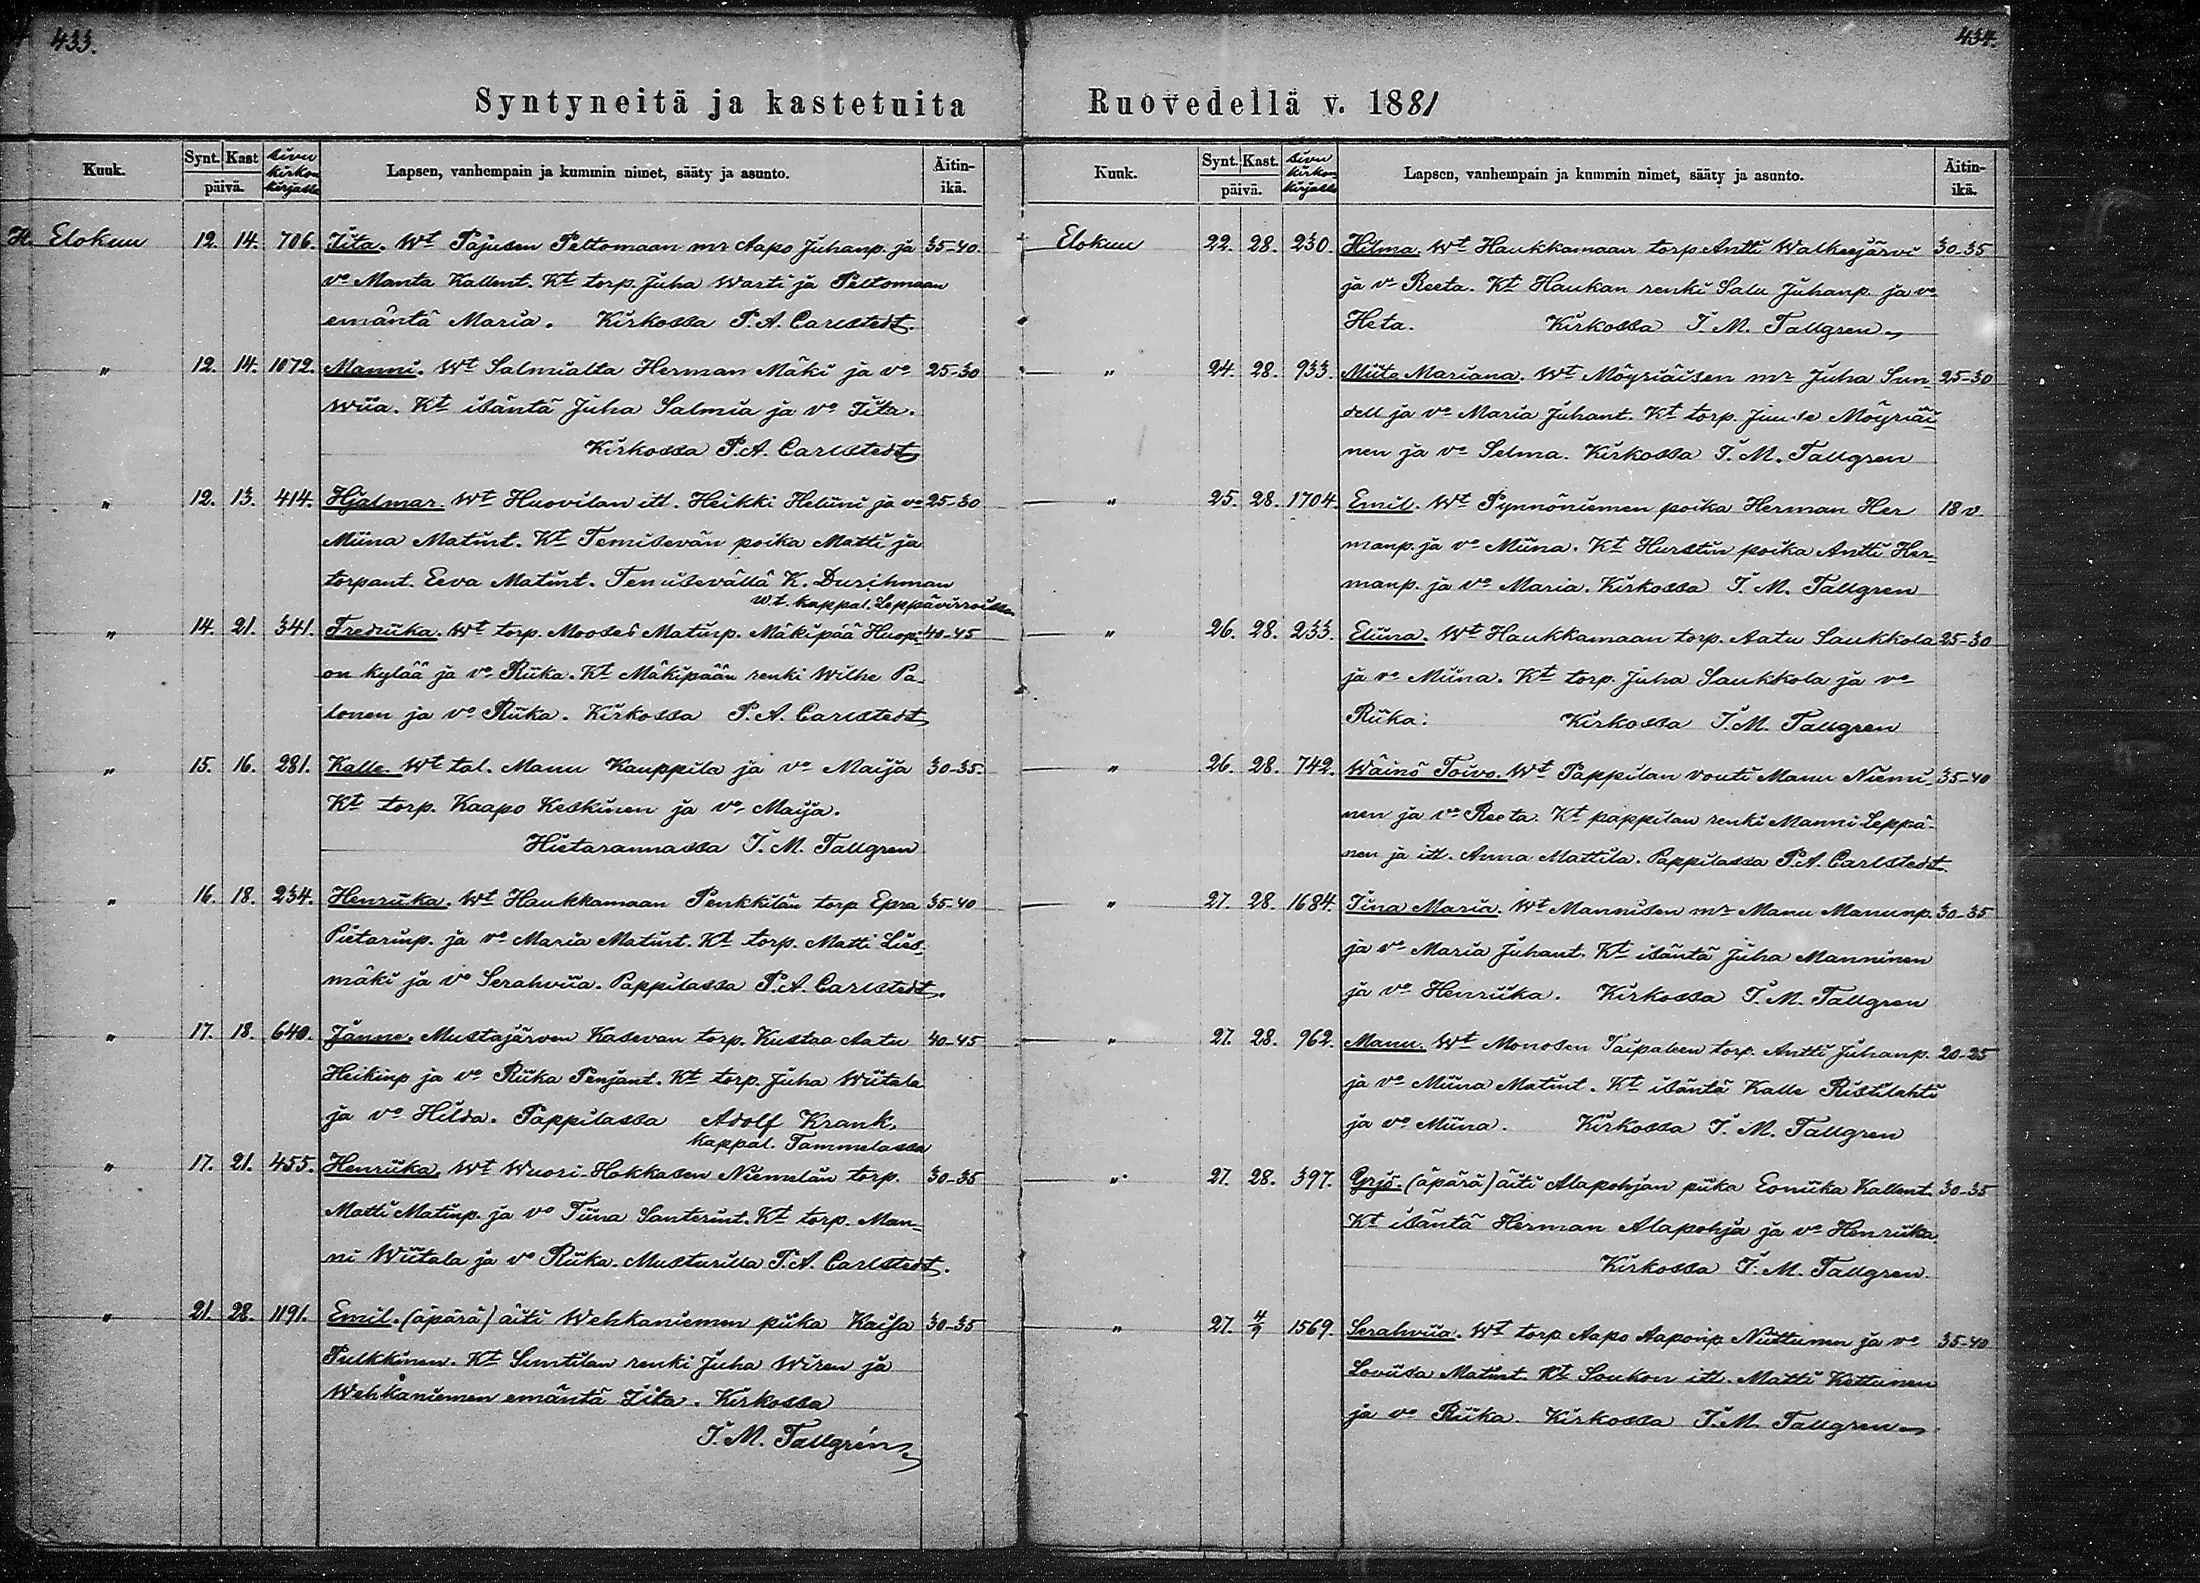 433.
Syntyneitä ja kastetuita
Kuuk. Synt. Kast päivä. sivu kirkon kirjassa Lapsen, vanhempain ja kummin nimet, sääty ja asunto. Äitin-ikä.
H. Elokuu 12. 14. 706. Iita. Wt Pajusen Peltomaan mr Aapo Juhanp. ja 35-40.
vo Manta Kallent. Kt torp. Juha Warti ja Peltomaan
emäntä Maria. Kirkossa P. A. Carlstedt.
" 12. 14. 1072. Manni. Wt Salmialta Herman Mäki ja vo 25-30
Wiia. Kt isäntä Juha Salmia ja vo Iita.
Kirkossa P. A. Carlstedt
" 12. 13. 414. Hjalmar. Wt Huovilan itl. Heikki Heliini ja vo 25-30
Miina Matint. Kt Temisevän poika Matti ja
torpant. Eeva Matint. Temisevällä K. Durchman
w.t. kappal. Leppävirroilla
" 14. 21. 341. Frediika. Wt torp. Mooses Matinp. Mäkipää Huopi- 40-45
on kylää ja vo Riika. Kt Mäkipään renki Wilhe Pa-
lonen ja vo Riika. Kirkossa P. A. Carlstedt
" 15. 16. 281. Kalle. Wt tal. Manu Kauppila ja vo Maija 30-35.
Kt torp. Kaapo Keskinen ja vo Maija.
Hietarannassa I. M. Tallgren
" 16. 18. 234. Henriika. Wt Haukkamaan Penkkilän torp Epra 35-40
Pietarinp. ja vo Maria Matint. Kt torp. Matti Lies-
mäki ja vo Serahviia. Pappilassa P. A. Carlstedt.
" 17. 18. 640. Janne. Mustajärven Kasevan torp. Kustaa Aatu 40-45
Heikinp ja vo Riika Penjant. Kt torp. Juha Wiitala
ja vo Hilda. Pappilassa Adolf Krank.
kappal. Tammelassa
" 17. 21. 455. Henriika. Wt Wuori-Hokkasen Niemelän torp. 30-35
Matti Matinp. ja vo Tiina Santerint. Kt torp. Man-
ni Wiitala ja vo Riika. Musturilla P. A. Carlstedt.
" 21. 28. 1191. Emil. (äpärä) äiti Wehkaniemen piika Kaisa 30-35
Pulkkinen. Kt Simtilan renki Juha Wiren ja
Wehkaniemen emäntä Iita. Kirkossa
I. M. Tallgren
434.
Ruovedellä v. 1881
Kuuk. Synt. Kast. päivä. sivu kirkon kirjassa Lapsen, vanhempain ja kummin nimet, sääty ja asunto. Äitin-ikä.
Elokuu 22. 28. 230. Hilma. Wt Haukkamaan torp Antti Walkeejärvi 30-35
ja vo Reeta. Kt Haukan renki Salu Juhanp. ja vo
Heta. Kirkossa I. M. Tallgren
" 24. 28. 933. Miita Mariana. Wt Möyriäisen mr Juha Sun- 25-30
dell ja vo Maria Juhant. Kt torp. Juuse Möyriäi-
nen ja vo Selma. Kirkossa I. M. Tallgren
" 25. 28. 1704. Emil. Wt Pynnöniemen poika Herman Her 18 v.
manp. ja vo Miina. Kt Hurstin poika Antti Her-
manp. ja vo Maria. Kirkossa I. M. Tallgren
" 26. 28. 233. Eliina. Wt Haukkamaan torp. Aatu Saukkola 25-30
ja vo Miina. Kt torp. Juha Saukkola ja vo
Riika. Kirkossa I. M. Tallgren
" 26. 28. 742. Wäinö Toivo. Wt Pappilan vouti Manu Niemi- 35-40
nen ja vo Reeta. Kt pappilan renki Manni Leppä-
nen ja itl. Anna Mattila. Pappilassa P. A. Carlstedt.
" 27. 28. 1684. Iina Maria. Wt Mannisen mr Manu Manunp. 30-35
ja vo Maria Juhant. Kt isäntä Juha Manninen
ja vo Henriika. Kirkossa I. M. Tallgren
" 27. 28. 962. Manu. Wt Monosen Taipaleen torp. Antti Juhanp. 20-25
ja vo Miina Matint. Kt isäntä Kalle Ristilahti
ja vo Miina. Kirkossa I. M. Tallgren
" 27. 28. 397. Yrjö. (äpärä) äiti Alapohjan piika Eoniika Kallent. 30-35
Kt isäntä Herman Alapohja ja vo Henriika.
Kirkossa I. M. Tallgren.
" 27. 4/9 1569. Serahviia. Wt torp Aapo Aaponp Niittumn ja vo 35-40
Loviisa Matint. Kt Soukon itl. Matti Kettunen
ja vo Riika. Kirkossa I. M. Tallgren